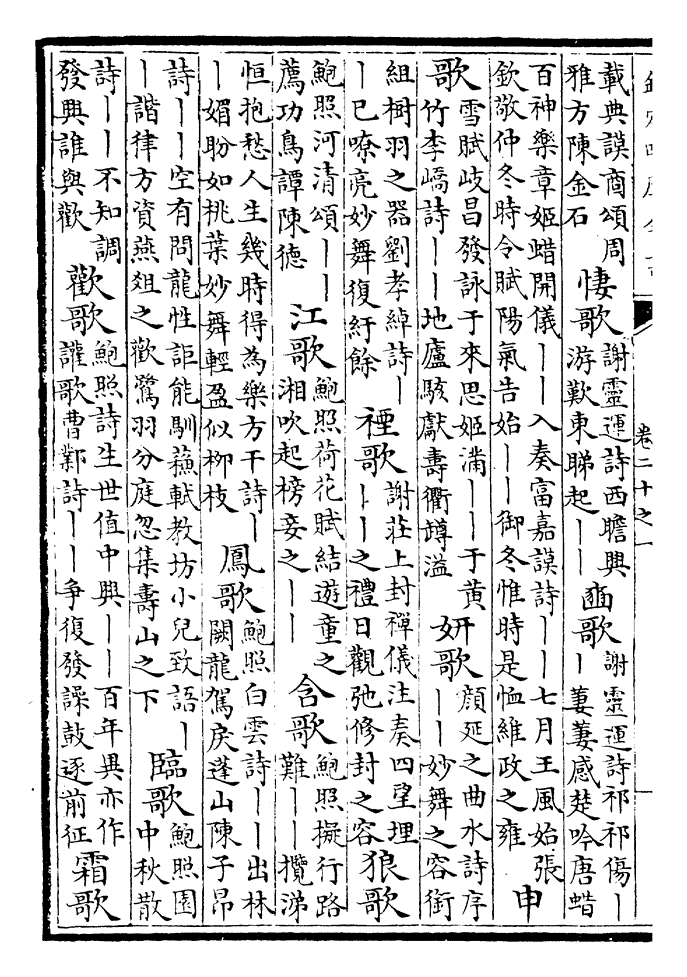 卷二十之一
載典謨商頌周
雅方陳金石
悽歌
謝靈運詩西瞻興
游歎東睇起丨丨
豳歌
謝靈運詩祁祁傷丨
丨萋萋感楚吟唐蜡
百神樂章姬蜡開儀丨丨入奏富嘉謨詩丨丨七月王風始張
欽敬仲冬時令賦陽氣告始丨丨御冬惟時是恤維政之雍
申
歌
雪賦岐昌發詠于來思姬滿丨丨于黃
竹李嶠詩丨丨地廬駭獻壽衢罇溢
妍歌
顏延之曲水詩序
丨丨妙舞之容銜
組樹羽之器劉孝綽詩丨
丨已嘹亮妙舞復紆餘
禋歌
謝莊上封禪儀注奏四望埋
丨丨之禮日觀弛修封之容
狼歌
鮑照河清頌丨丨
薦功鳥譚陳德
江歌
鮑照荷花賦結遊童之
湘吹起榜妾之丨丨
含歌
鮑照擬行路
難丨丨攬涕
恒抱愁人生幾時得為樂方干詩丨
丨媚盼如桃葉妙舞輕盈似柳枝
鳳歌
鮑照白雲詩丨丨出林
闕龍駕戾蓬山陳子昂
詩丨丨空有問龍性詎能馴蘇軾教坊小兒致語丨
丨諧律方資燕俎之歡鷺羽分庭忽集壽山之下
臨歌
鮑照園
中秋散
詩丨丨不知調
發興誰與歡
歡歌
鮑照詩生世值中興丨丨百年異亦作
讙歌曹鄴詩丨丨爭復發譟鼓逐前征
霜歌